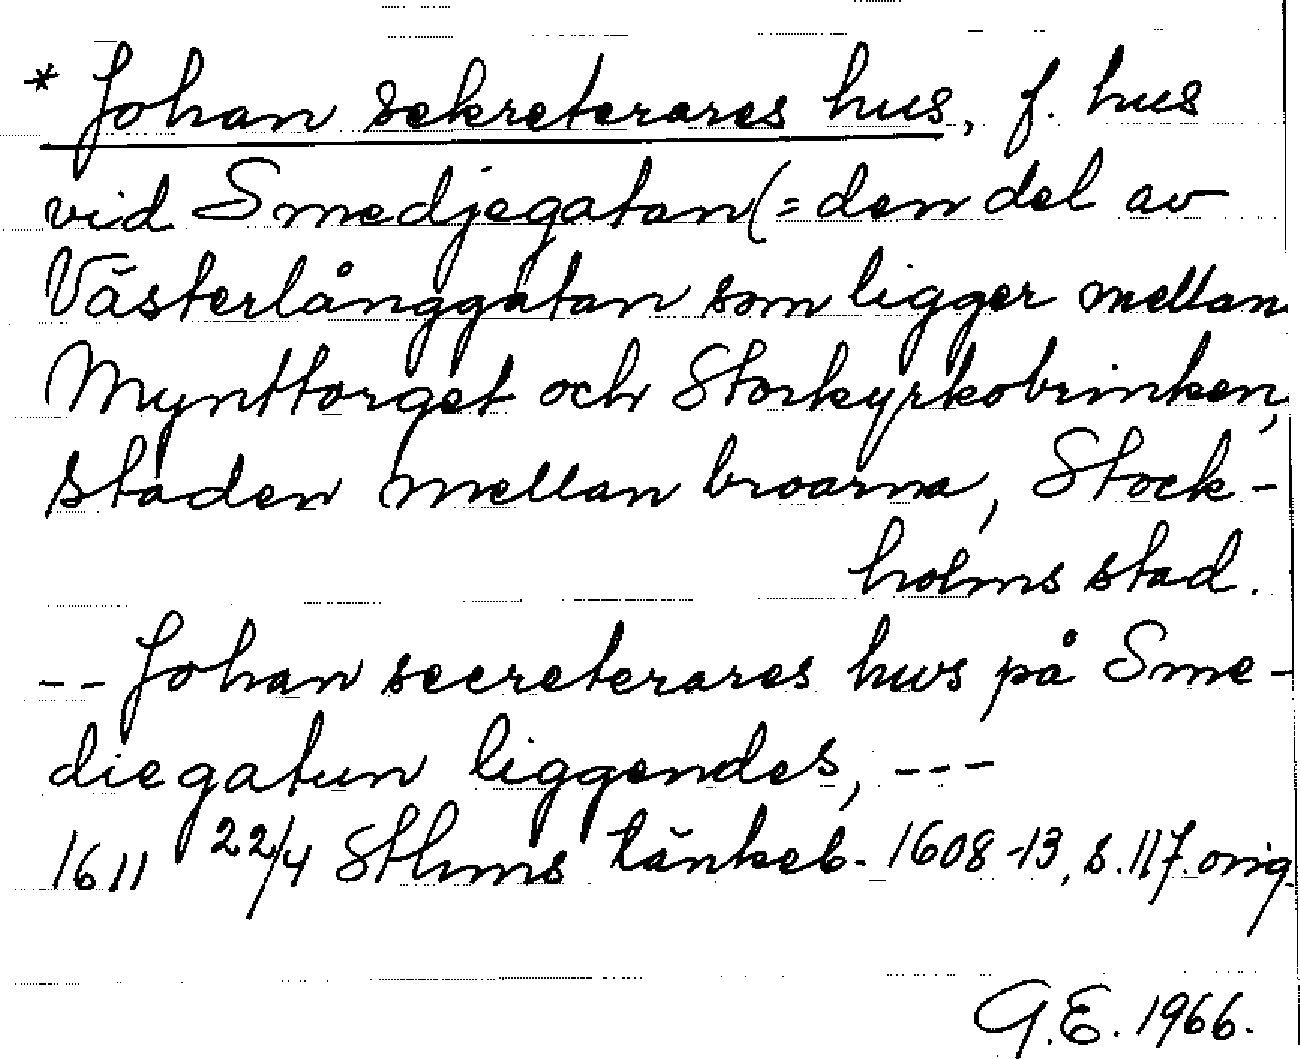 * Johan sekreterares hus, f. hus
vid Smedjegatan (= den del av
Västerlånggatan som ligger mellan
Mynttorget och Storkyrkobrinken,
staden mellan broarna, Stock-
holms stad.
-- Johan secreterares hws på Sme-
diegatun liggendes, ---
1611 22/4 Sthms tänkeb. 1608-13, s. 117. orig.
G.E. 1966.